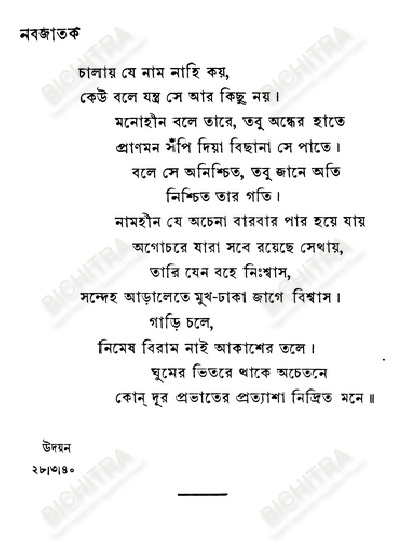 নবজাতক
চালায় যে নাম নাহি কয়,
কেউ বলে যন্ত্র সে আর কিছু নয়।
মনোহীন বলে তারে, তবু অন্ধের হাতে
প্রাণমন সঁপি দিয়া বিছানা সে পাতে॥
বলে সে অনিশ্চিত, তবু জানে অতি
নিশ্চিত তার গতি।
নামহীন যে অচেনা বারবার পার হয়ে যায়
অগোচরে যারা সবে রয়েছে সেথায়,
তারি যেন বহে নিঃশ্বাস,
সন্দেহ আড়ালেতে মুখ-ঢাকা জাগে বিশ্বাস॥
গাড়ি চলে,
নিমেষ বিরাম নাই আকাশের তলে।
ঘুমের ভিতরে থাকে অচেতনে
কোন্ দূর প্রভাতের প্রত্যাশা নিদ্রিত মনে॥
উদয়ন
২৮।৩।৪০
BICHITRA